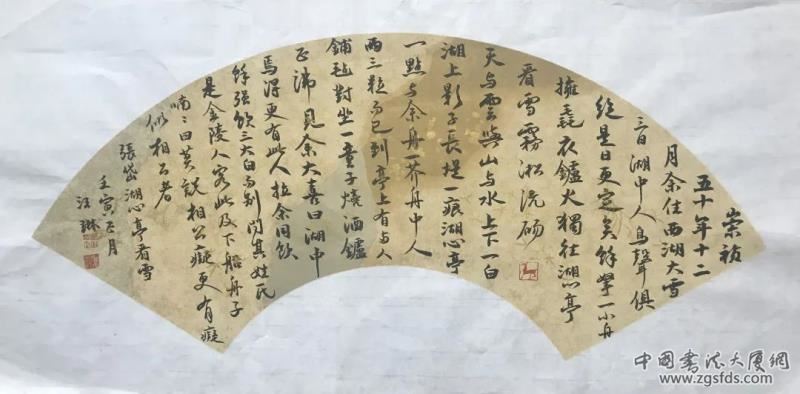 崇禎
五十年十二
月余住西湖大雪
三日湖中人鳥聲俱
絕是日更定矣餘拏一小舟
擁毳衣鑪火獨往湖心亭
看雪霧淞沆碭
天与雲與山与水上下一白
湖上影子長堤一痕湖心亭
一點与余舟一芥舟中人
兩三粒而已到亭上有与人
鋪毡對坐一童子燒酒鑪
正沸見余大喜曰湖中
焉得更有此人拉余同飲
餘強飲三大白与别问其姓氏
是金陵人客此及下船舟子
喃喃曰莫説相公癡更有癡
似相公者
張岱湖心亭看雪
壬寅正月
汪琳
中国書法大厦網
www.zgsfds.com